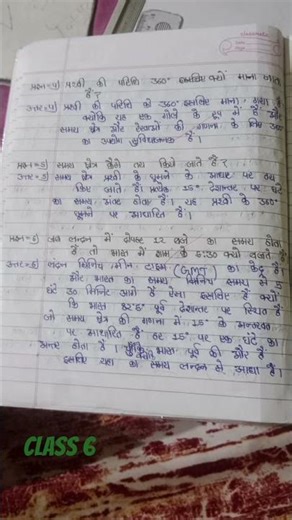 प्रश्न=4) पृथ्वी की परिधि 360° इसलिए क्यों माना जाता
है ?
उत्तर=4) पृथ्वी की परिधि को 360° इसलिए माना गया है
क्योंकि यह एक गोले के रूप में है और
समय क्षेत्र और रेखाओं की गणना के लिए 360°
का उपयोग सुविधाजनक है।
प्रश्न=5) समय क्षेत्र कैसे तय किये जाते हैं ?
उत्तर=5) समय क्षेत्र पृथ्वी के घूमने के आधार पर तय
किए जाते हैं। प्रत्येक 15° देशान्तर पर घंटे
का समय अंतर होता है। यह पृथ्वी के 360°
घूमने पर आधारित है।
प्रश्न=6) जब लन्दन में दोपहर 12 बजे का समय होता
है तो भारत में शाम के 5:30 क्यों बजते हैं
उत्तर=6) लंदन ग्रिनिच मीन टाइम (GMT) का केंद्र है।
और भारत का समय ग्रिनिच समय से 5
घंटे 30 मिनिट आगे है ऐसा इसलिए है क्यों
कि भारत 82°5° पूर्व देशान्तर पर स्थित है
जो समय क्षेत्र की गणना में 15° के अन्तराल
पर आधारित है हर 15° पर एक घंटे का
अन्तर होता है। भारत पूर्व की ओर है
इसलिए यहा का समय लन्दन से आगे है।
CLASS 6